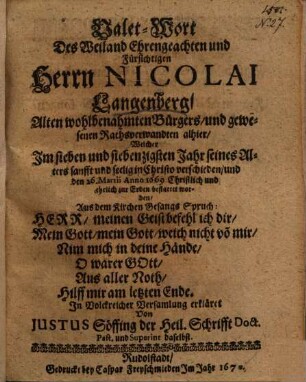 Valet-Wort
Des Weiland Ehrengeachten und
Fürsichtigen
Herrn NICOLAI
Langenberg/
Alten wohlbenahmten Bürgers/ und gewe-
senen Rathsverwandten alhier/
Welcher
Im sieben und siebenzigsten Jahr seines Al-
ters sanfft und seelig in Christo verschieden/ und
den 26. Martii Anno 1669 Christlich und
ehrlich zur Erden bestattet wor-
den/
Aus dem Kirchen Gesangs Spruch:
HERR/ meinen Geist befehl ich dir/
Mein Gott/ mein Gott/ weich nicht võ mir/
Nim mich in deine Hände/
O warer GOtt/
Aus aller Noth/
Hilff mir am letzten Ende.
In Volckreicher Versamlung erkläret
Von
JUSTUS Söffing der Heil. Schrifft Doct.
Past. und Superint daselbst.
Rudolstadt/
Gedruckt bey Caspar Freyschmieden Im Jahr